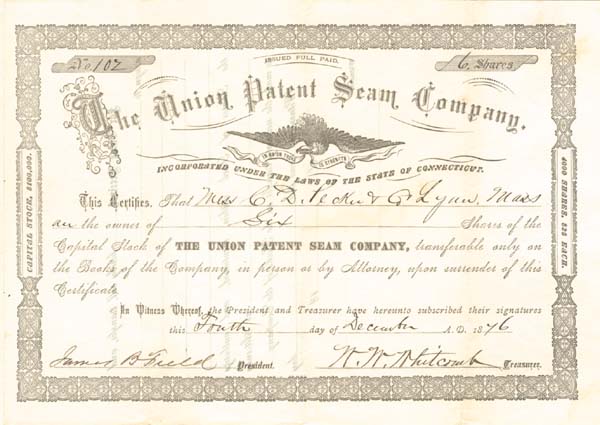 ISSUED FULL PAID.
No 102
6 Shares
The Union Patent Seam Company.
IN UNION THERE IS STRENGTH
INCORPORATED UNDER THE LAWS OF THE STATE OF CONNECTICUT.
CAPITAL STOCK, $100,000.
4000 SHARES, $25 EACH.
This Certifies, That Miss C. D. Lynn, Mass
the owner of Six Shares of the
Capital Stock of THE UNION PATENT SEAM COMPANY, transferable only on
the Books of the Company, in person or by Attorney, upon surrender of this
Certificate
In Witness Whereof, the President and Treasurer have hereunto subscribed their signatures
this Fourth day of December A. D. 1876
James B Field President.
W. W. Whitcomb Treasurer.